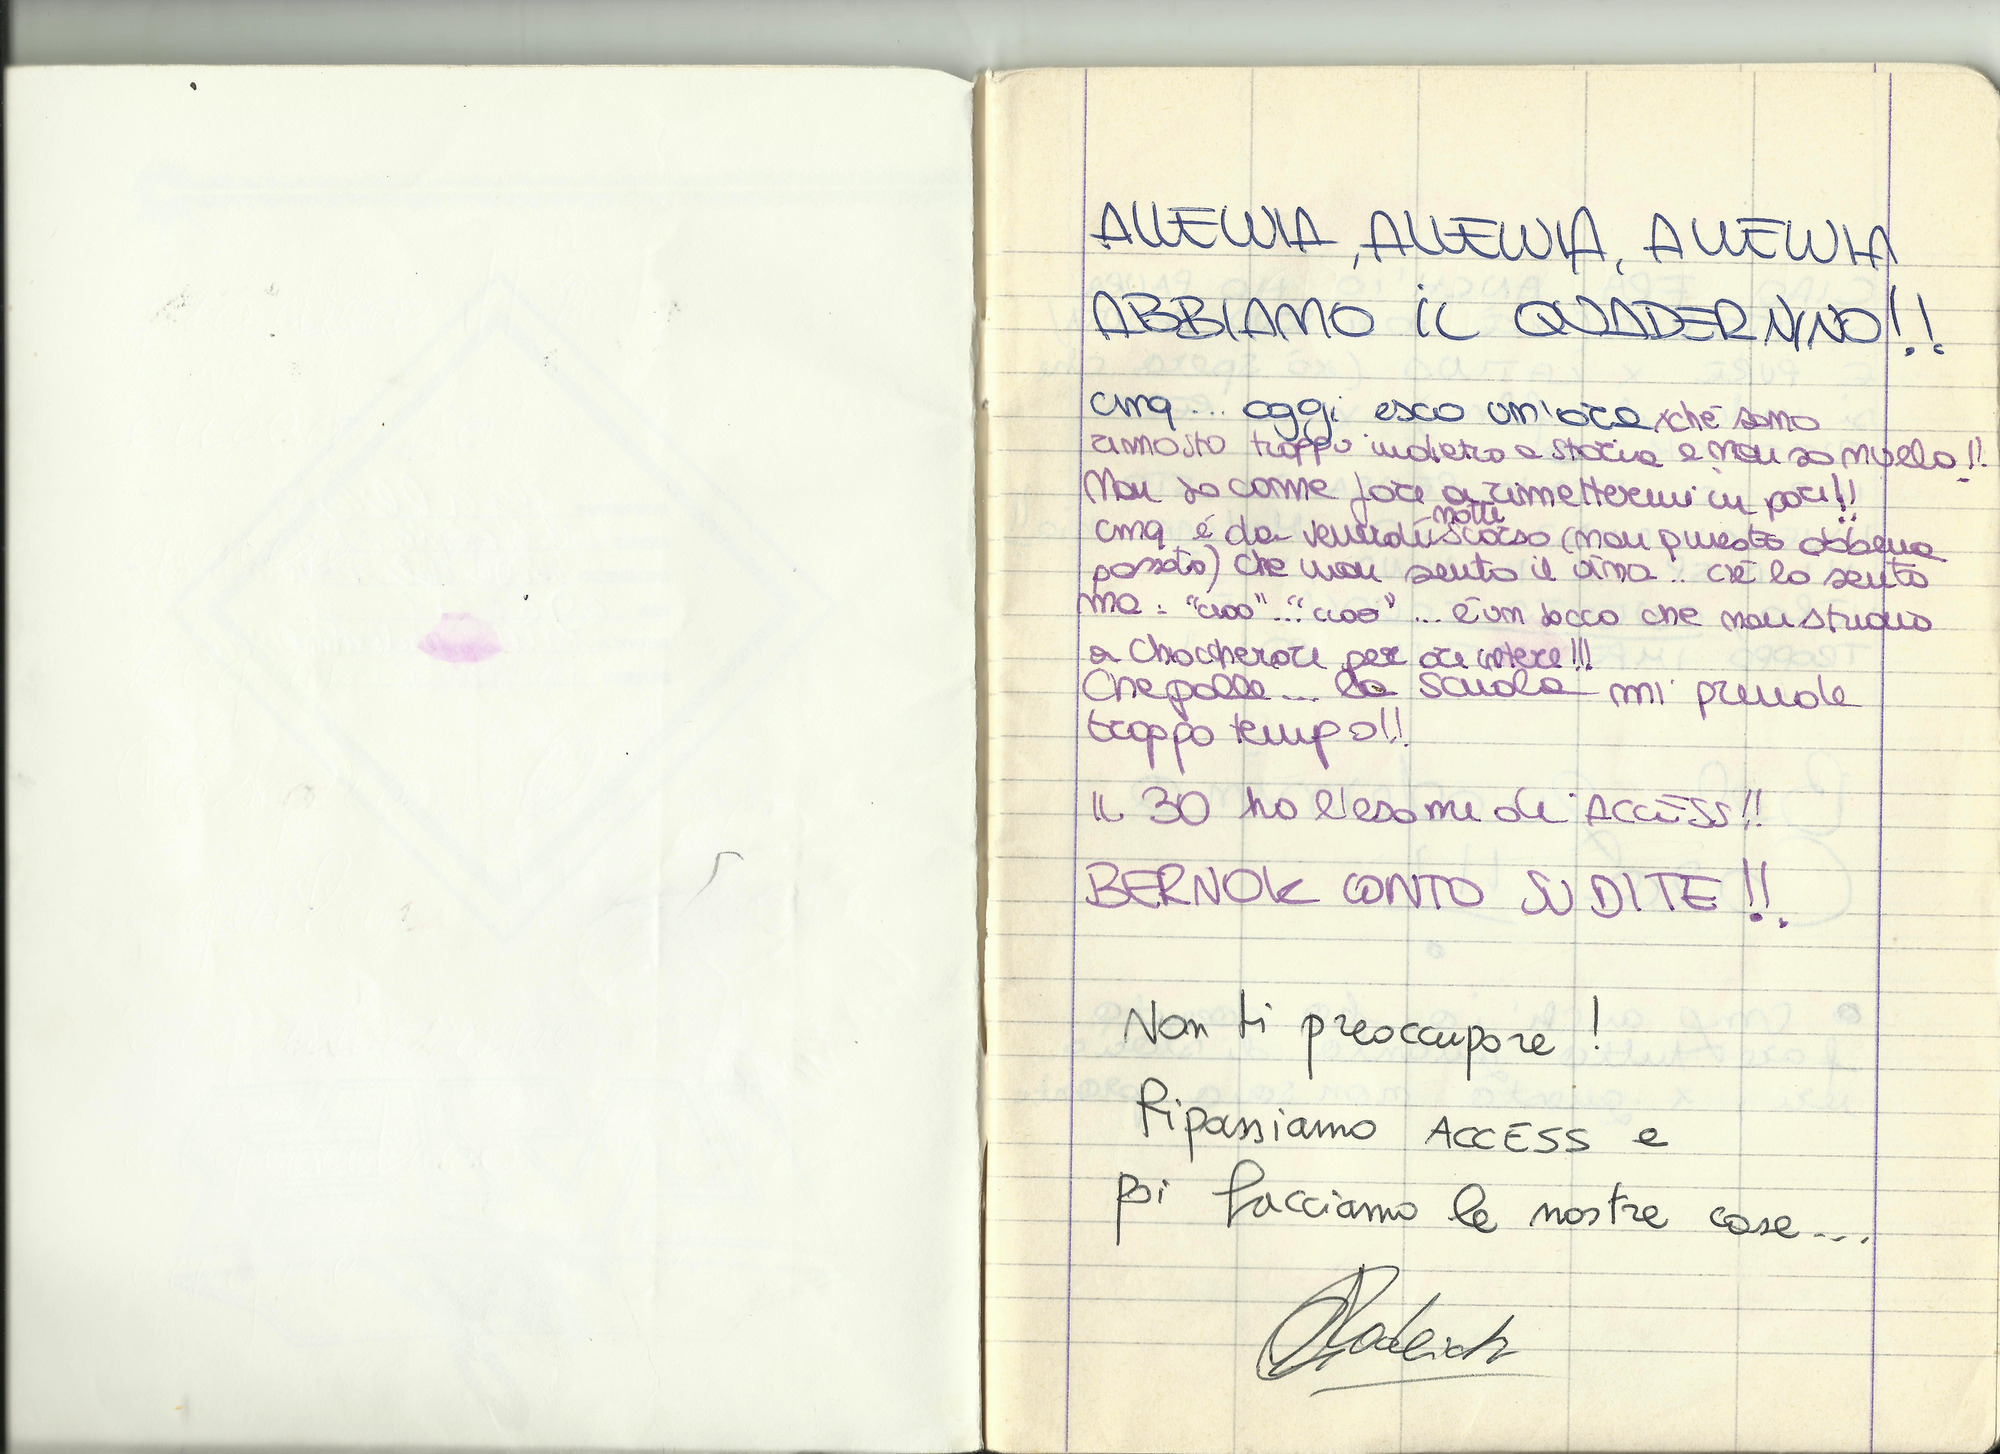 ALLELUIA, ALLELUIA, ALLELUIA
ABBIAMO IL QUADERNINO!!
cmq... oggi esco un'ora xché sono
rimasta troppo indietro a storia e non so nulla!!
Non so come fare a rimettermi in pari!!
notte
cmq è da venerdì scorso (non questo appena
passato) che non sento il
cioè lo sento
ma: "ciao"... "ciao"... è un sacco che non stiamo
a chiacchierare per ore intere!!!
Che palle... la scuola mi prende
troppo tempo!!
IL 30 ho l'esame di ACCESS!!
BERNOK CONTO SU DI TE!!
Non ti preoccupare!
Ripassiamo ACCESS e
poi facciamo le nostre cose...